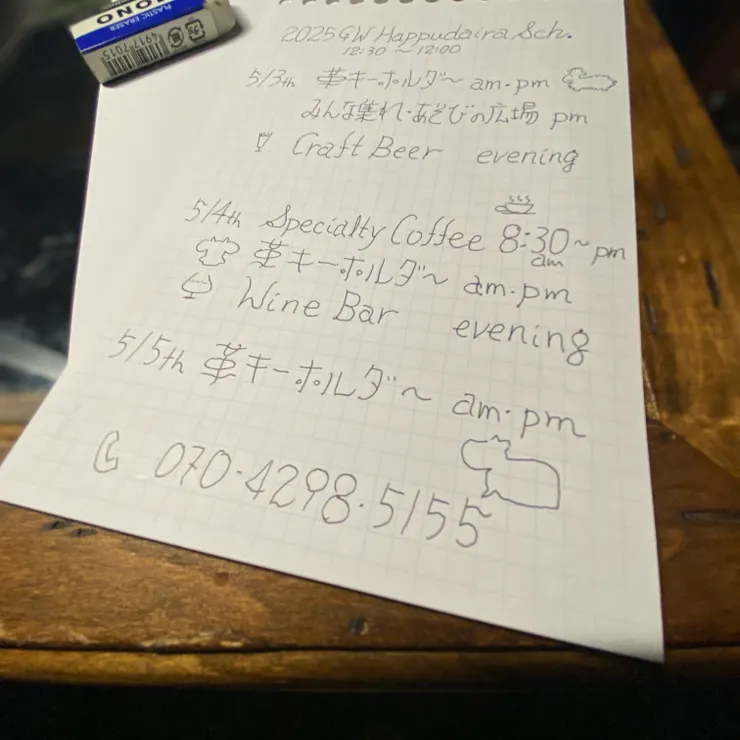 MONO
PLASTIC ERASER
4917 7015
2025 GW Happudaira Sch.
12:30 ~ 12:00
5/3th 革キーホルダ～ am・pm
みんな集れ・あそびの広場 pm
Craft Beer evening
5/4th Specialty Coffee 8:30～pm
am
革キーホルダ～ am・pm
Wine Bar evening
5/5th 革キーホルダ～ am・pm
070・4298・5155